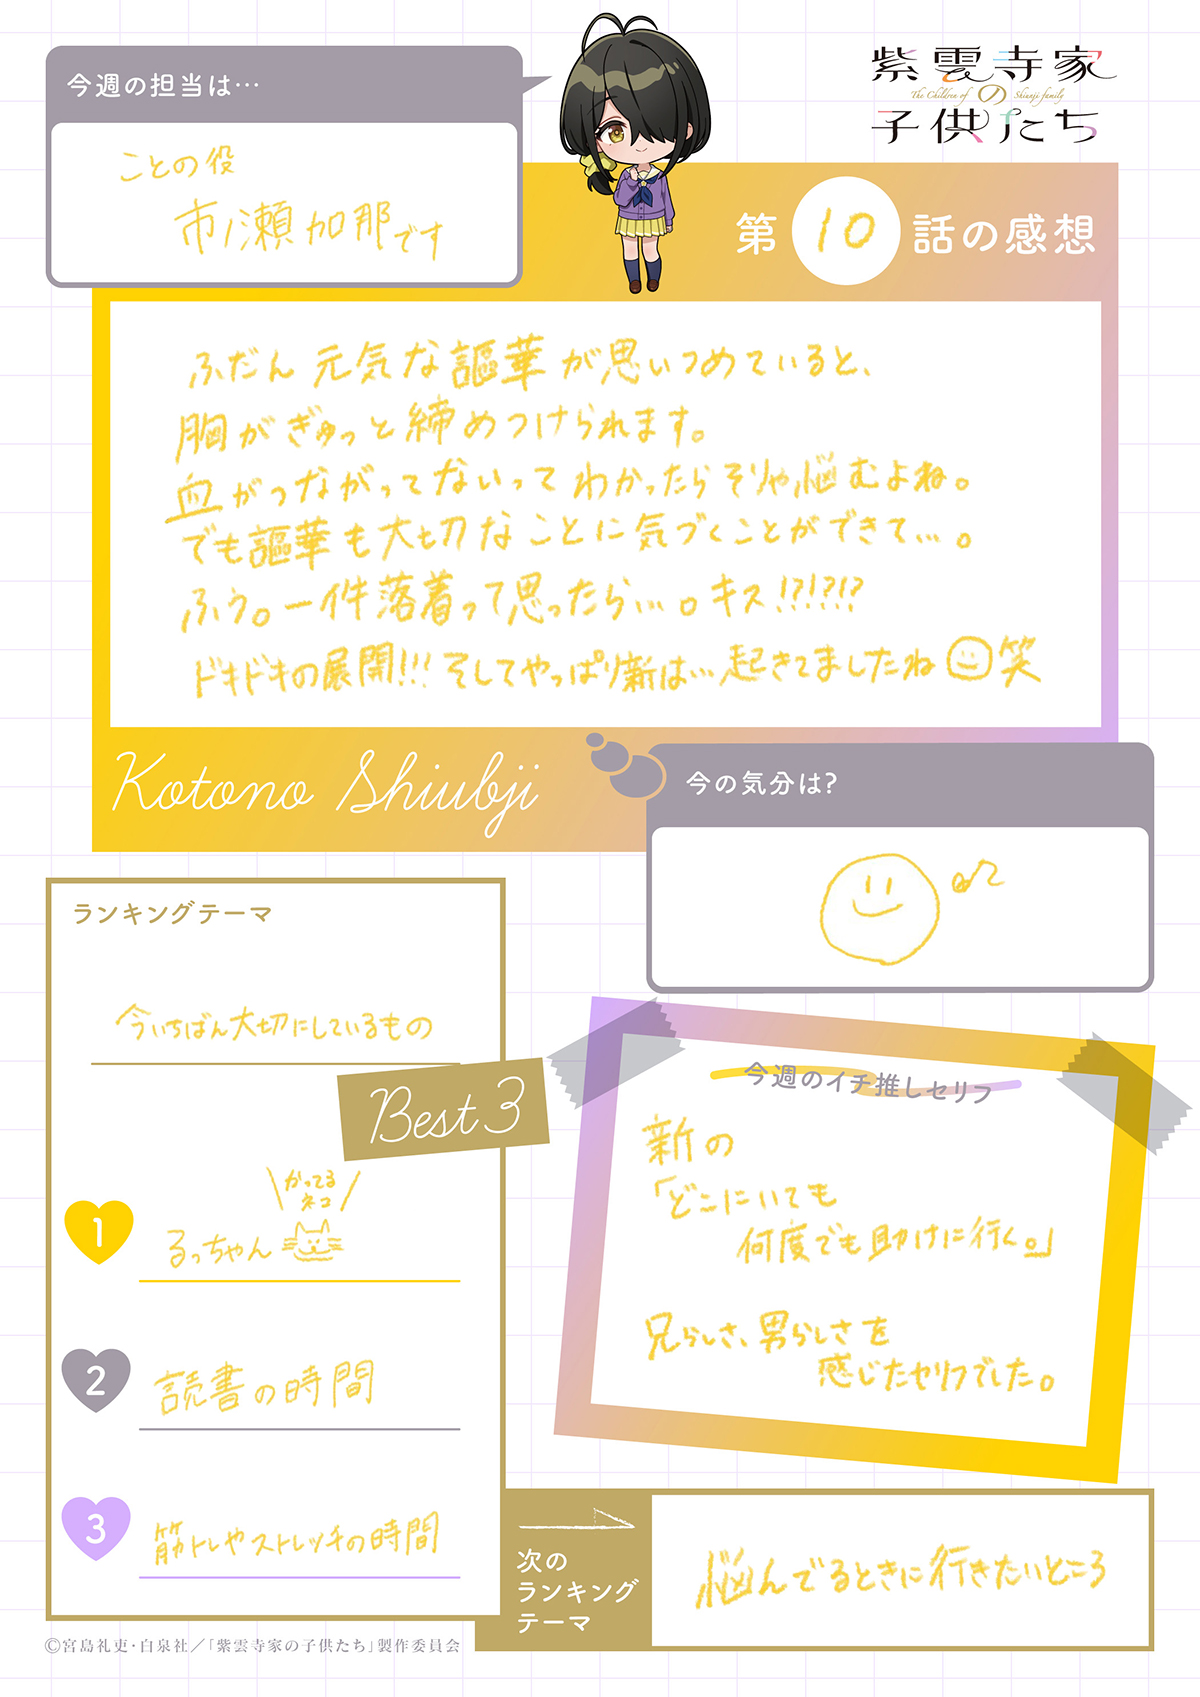 今週の担当は…
ことの役
市ノ瀬加那です
紫雲寺家の子供たち
The Children of Shiunji family
第10話の感想
ふだん元気な謳華が思いつめていると、
胸がぎゅっと締めつけられます。
血がつながってないってわかったらそりゃ悩むよね。
でも謳華も大切なことに気づくことができて…。
ふぅ。一件落着って思ったら…。キス!?!?!?
ドキドキの展開!!!そしてやっぱり新は…起きてましたね笑
Kotono Shiubji
今の気分は?
ランキングテーマ
今いちばん大切にしているもの
Best 3
かってるネコ
1 るっちゃん
2 読書の時間
3 筋トレやストレッチの時間
今週のイチ推しセリフ
新の
「どこにいても
何度でも助けに行く。」
兄らしさ、男らしさを
感じたセリフでした。
次の
ランキング
テーマ
悩んでるときに行きたいところ
©宮島礼吏・白泉社／「紫雲寺家の子供たち」製作委員会